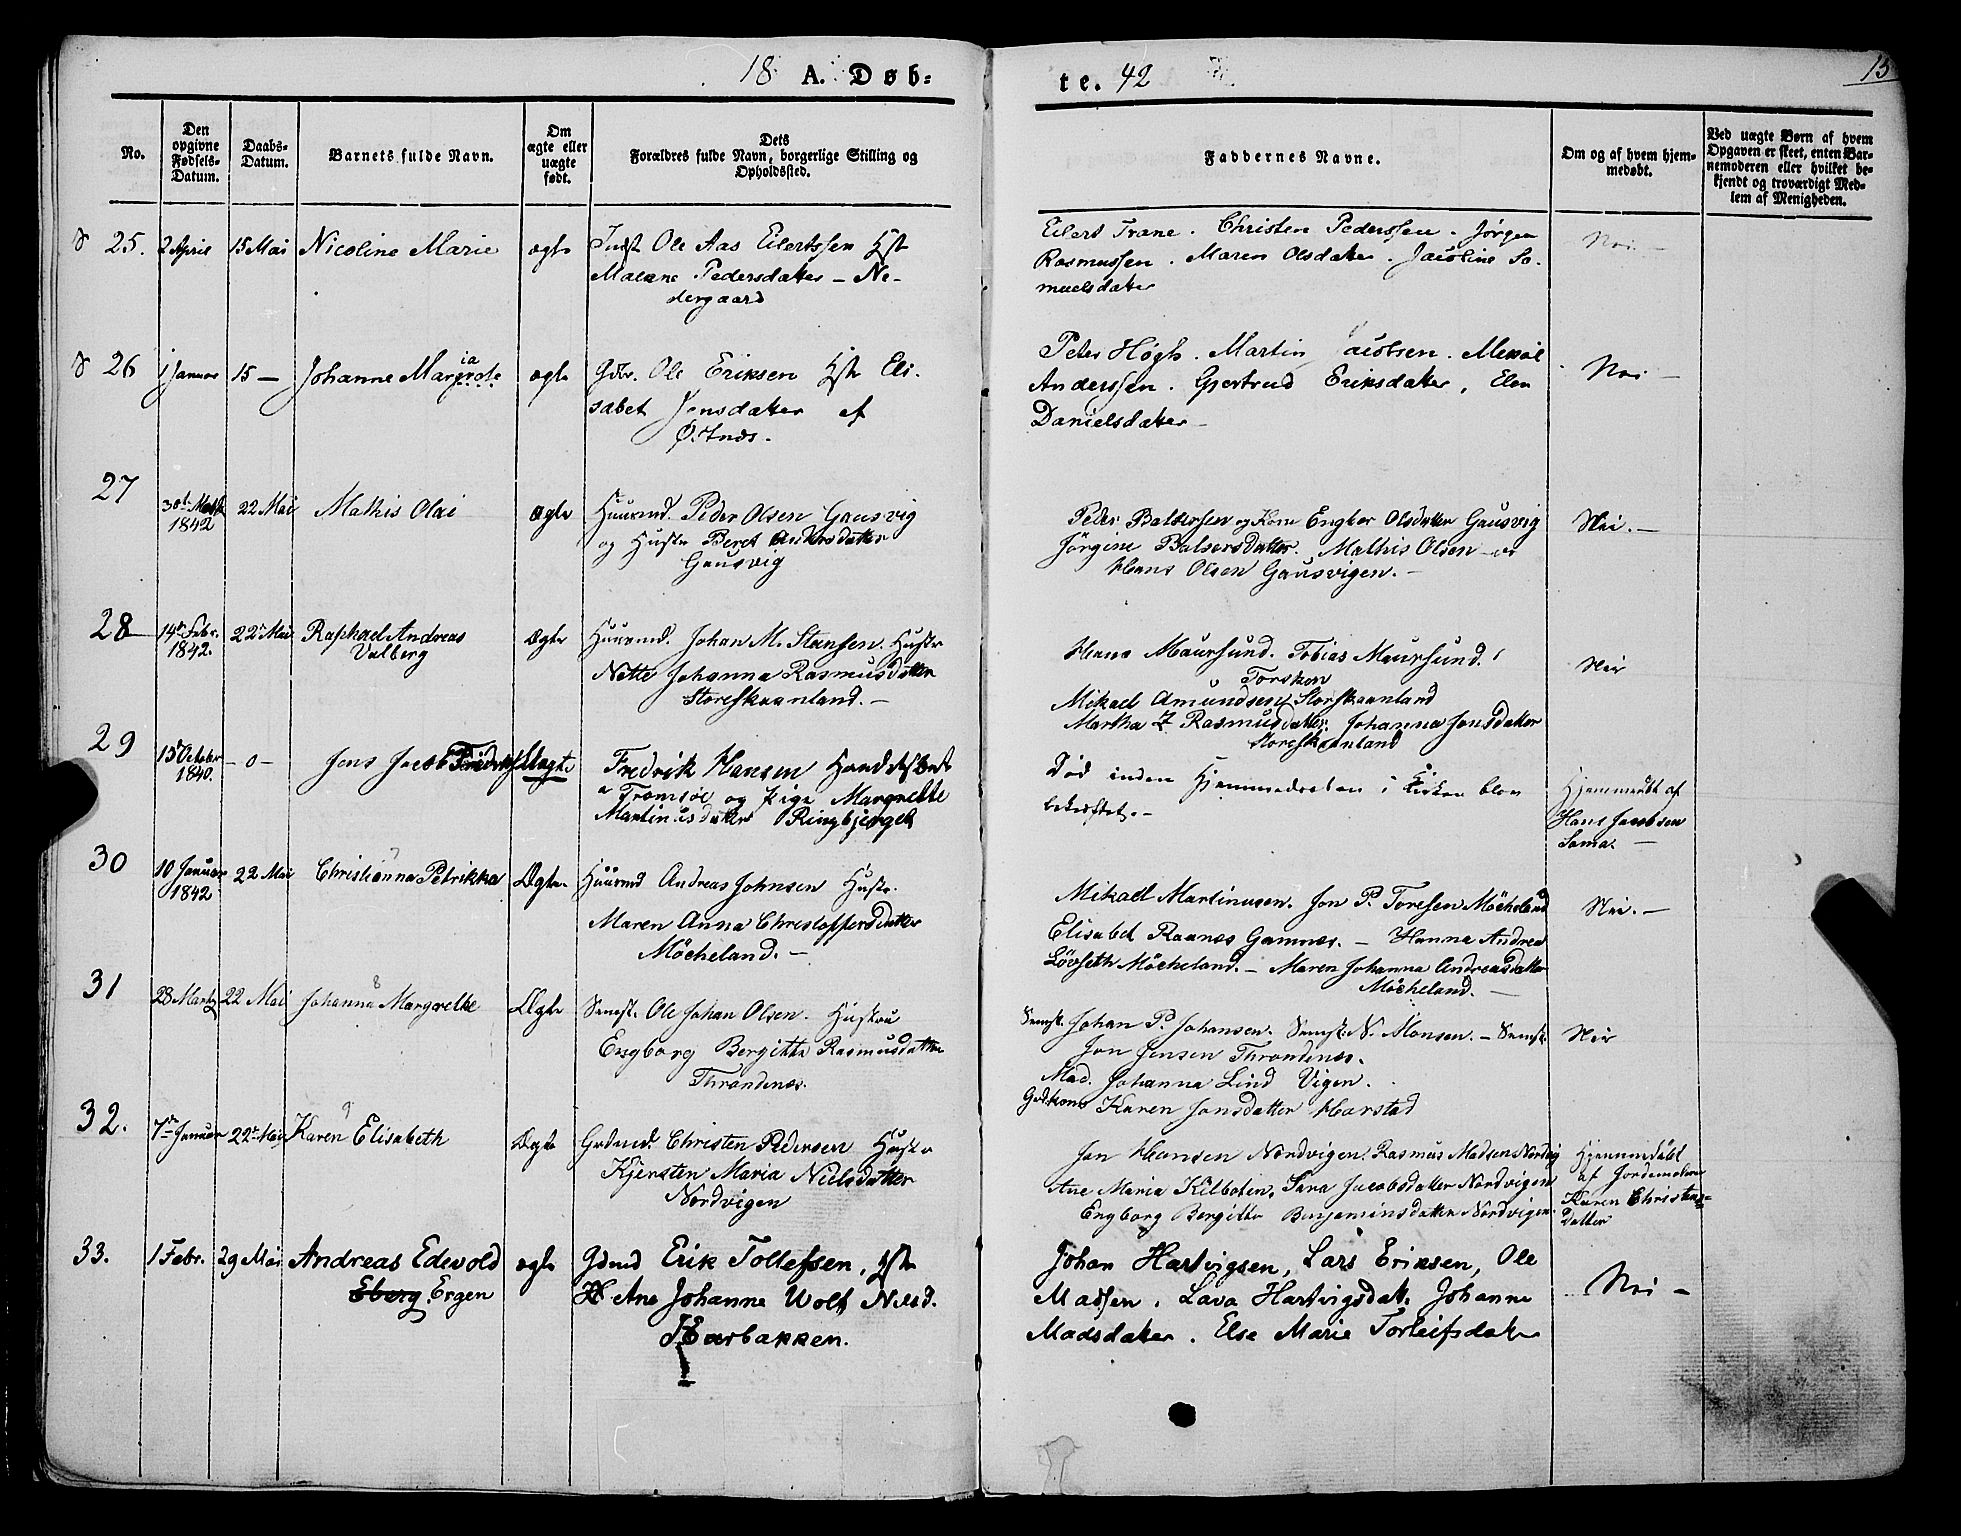 18 A. Døb=
te. 42
13
No.
Den opgivne Fødsels-Datum.
Daabs-Datum.
Barnets fulde Navn.
Om ægte eller uægte født.
Dets Forældres fulde Navn, borgerlige Stilling og Opholdssted.
Faddernes Navne.
Om og af hvem hjem-medøbt.
Ved uægte Børn af hvem Opgaven er skeet, enten Bar-nemoderen eller hvilket be-kjendt og troværdigt Med-lem af Menigheden.
25. 2 April 15 Mai Nicoline Marie ægte
Indst Ole Aas Eilertssen Hst
Malene Pedersdatter – Ne-
dergaard
Eilert Trane. Christen Pederssen. Jørgen
Rasmussen. Maren Olsdatter. Jacoline Sa-
muelsdatter
Nei –
26 1 Januar 15 – Johanne Margrete ia ægte
Gdbr. Ole Eriksen Hst Eli-
sabet Jensdatter af
Østnes.
Peter Høgh. Martin Jacobsen. Mekal
Anderssen. Gjertrud Eriksdatter, Elen
Danielsdatter –
Nei –
27
30te Marts 1842 22 Mai Mathis Olai Ægte
Huusmd. Peder Olsen Gausvig
og Hustr Beret Andersdatter
Gausvig
Peder Baltzersen og Kone Engber Olsdatter Gausvig
Jørgine Balsersdatter. Mathis Olsen
Hans Olsen Gausvigen. –
Nei. –
28
14de Febr. 1842. 22 Mai Raphael Andreas
Valberg
Ægte
Huusmd. Johan M. Stensen. Hustr
Nette Johanna Rasmusdatter
Storeskaanland. –
Hans Maursund. Tobias Maursund.
Torsken
Mikael Amundsen Storskaanland
Martha Z Rasmusdatter. Johanna Jonsdatter
Storeskaanland
Nei
29
15 October 1840. – 0 – Jens Jacob Fredrik Uægte
Fredrik Hansen Handelsbetjent
Tromsøe og Pige Margrette
Martinusdatter Ringbjerget
Død inden Hjemmedaaben i Kirken blev
bekræftet. –
Hjemmedøbt af
Hans Jacobsen
Sama. –
30
10 Januar 1842 22 Mai Christianna Petrikka Ægte.
Huusmd Andreas Johnsen Hustr.
Maren Anna Christoffersdatter
Møcheland. –
Mikael Martinusen. Jon P. Toresen Møcheland
Elisabet Raanæs Gamnæs. – Hanna Andrea
Løvseth Møcheland. – Maren Johanna Andreasdatter
Møcheland. –
Nei. –
31
28 Marts 22 Mai Johanna Margrethe Ægte
8
Semst. Ole Johan Olsen. Hustru
Engborg Bergitte Rasmusdatter
Throndenæs.
Semst. Johan P. Johansen. Semst. N. Monsen. – Semst.
Jon Jensen Throndenæs.
Mad. Johanna Lind Vigen.
Gdkone Karen Jonsdatter Harstad
Nei
32.
7de Januar 22de Mai Karen Elisabeth Ægte
9
Grdmd. Christen Pedersen Hustr
Kjersten Maria Nielsdatter
Nordvigen
Jon Hansen Nordvigen. Rasmus Madsen Nordvig
Ane Maria Kilboten, Sara Jacobsdatter Nordvigen
Engborg Bergitte Benjaminsdatter Nordvigen.
Hjemmedøbt
af Jordemoderen
Karen Christens-
Datter
33.
1 Febr. 29 Mai Andreas Edevold
Eberg. Ergen
ægte
Gdmd Erik Tollefsen, Hst
Ane Johanne Wolt Nilsd.
Haarbakken.
Johan Hartvigsen, Lars Eriksen, Ole
Madsen. Lava Hartvigsdat. Johanne
Madsdatter. Else Marie Torleifsdatter
Nei –